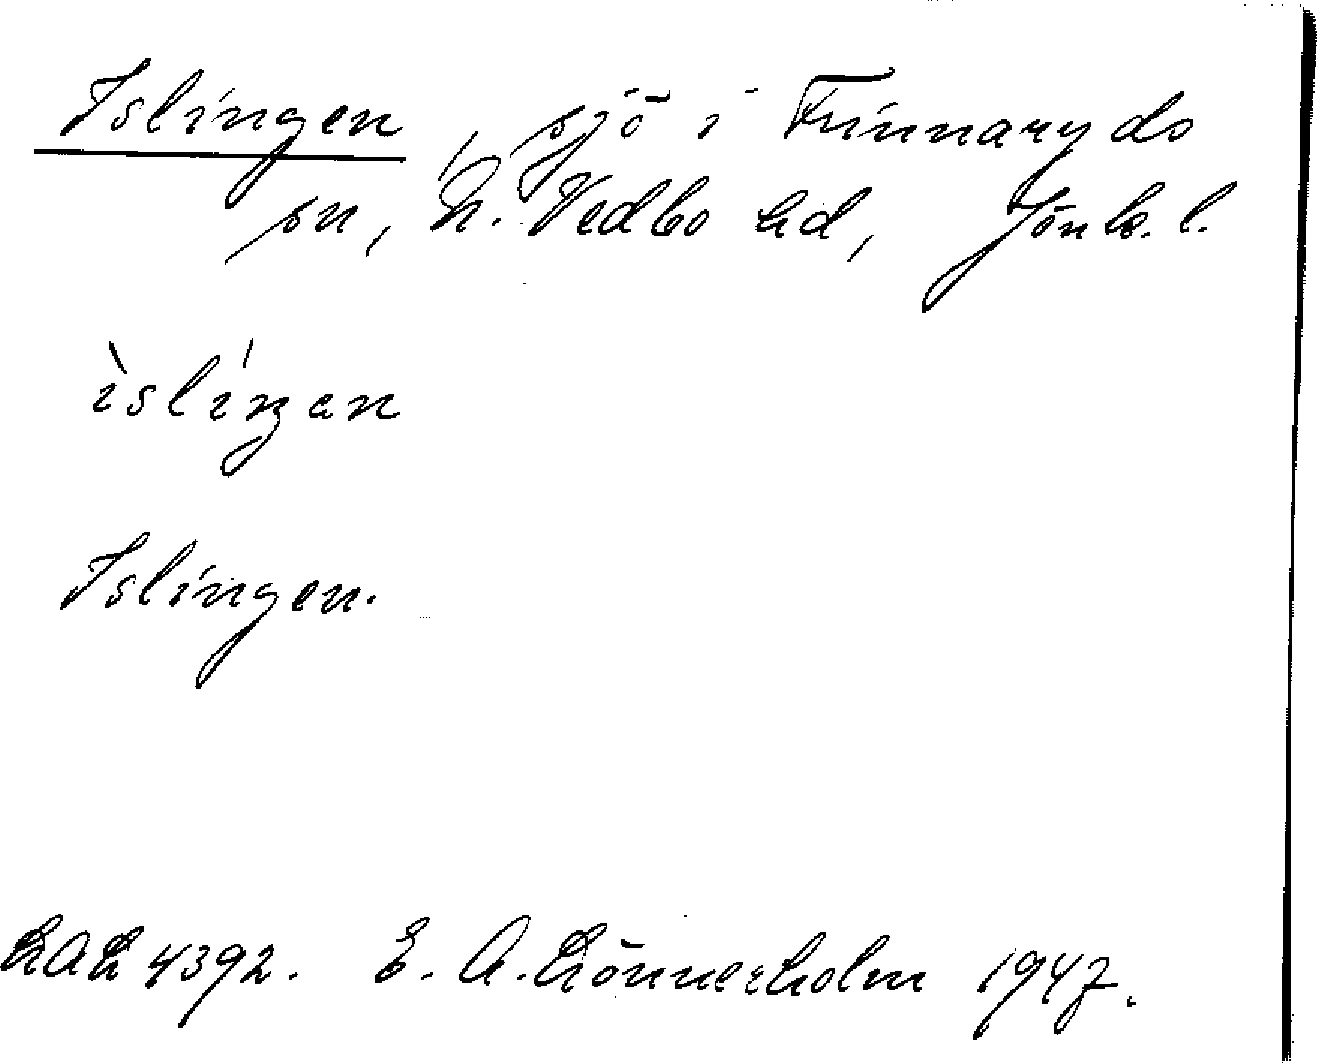 Islingen, sjö i Frinnaryds
sn, N. Vedbo hd, Jönk. l.
ìslíŋən
Islingen.
LAL 4392. E. A. Lönnerholm 1947.